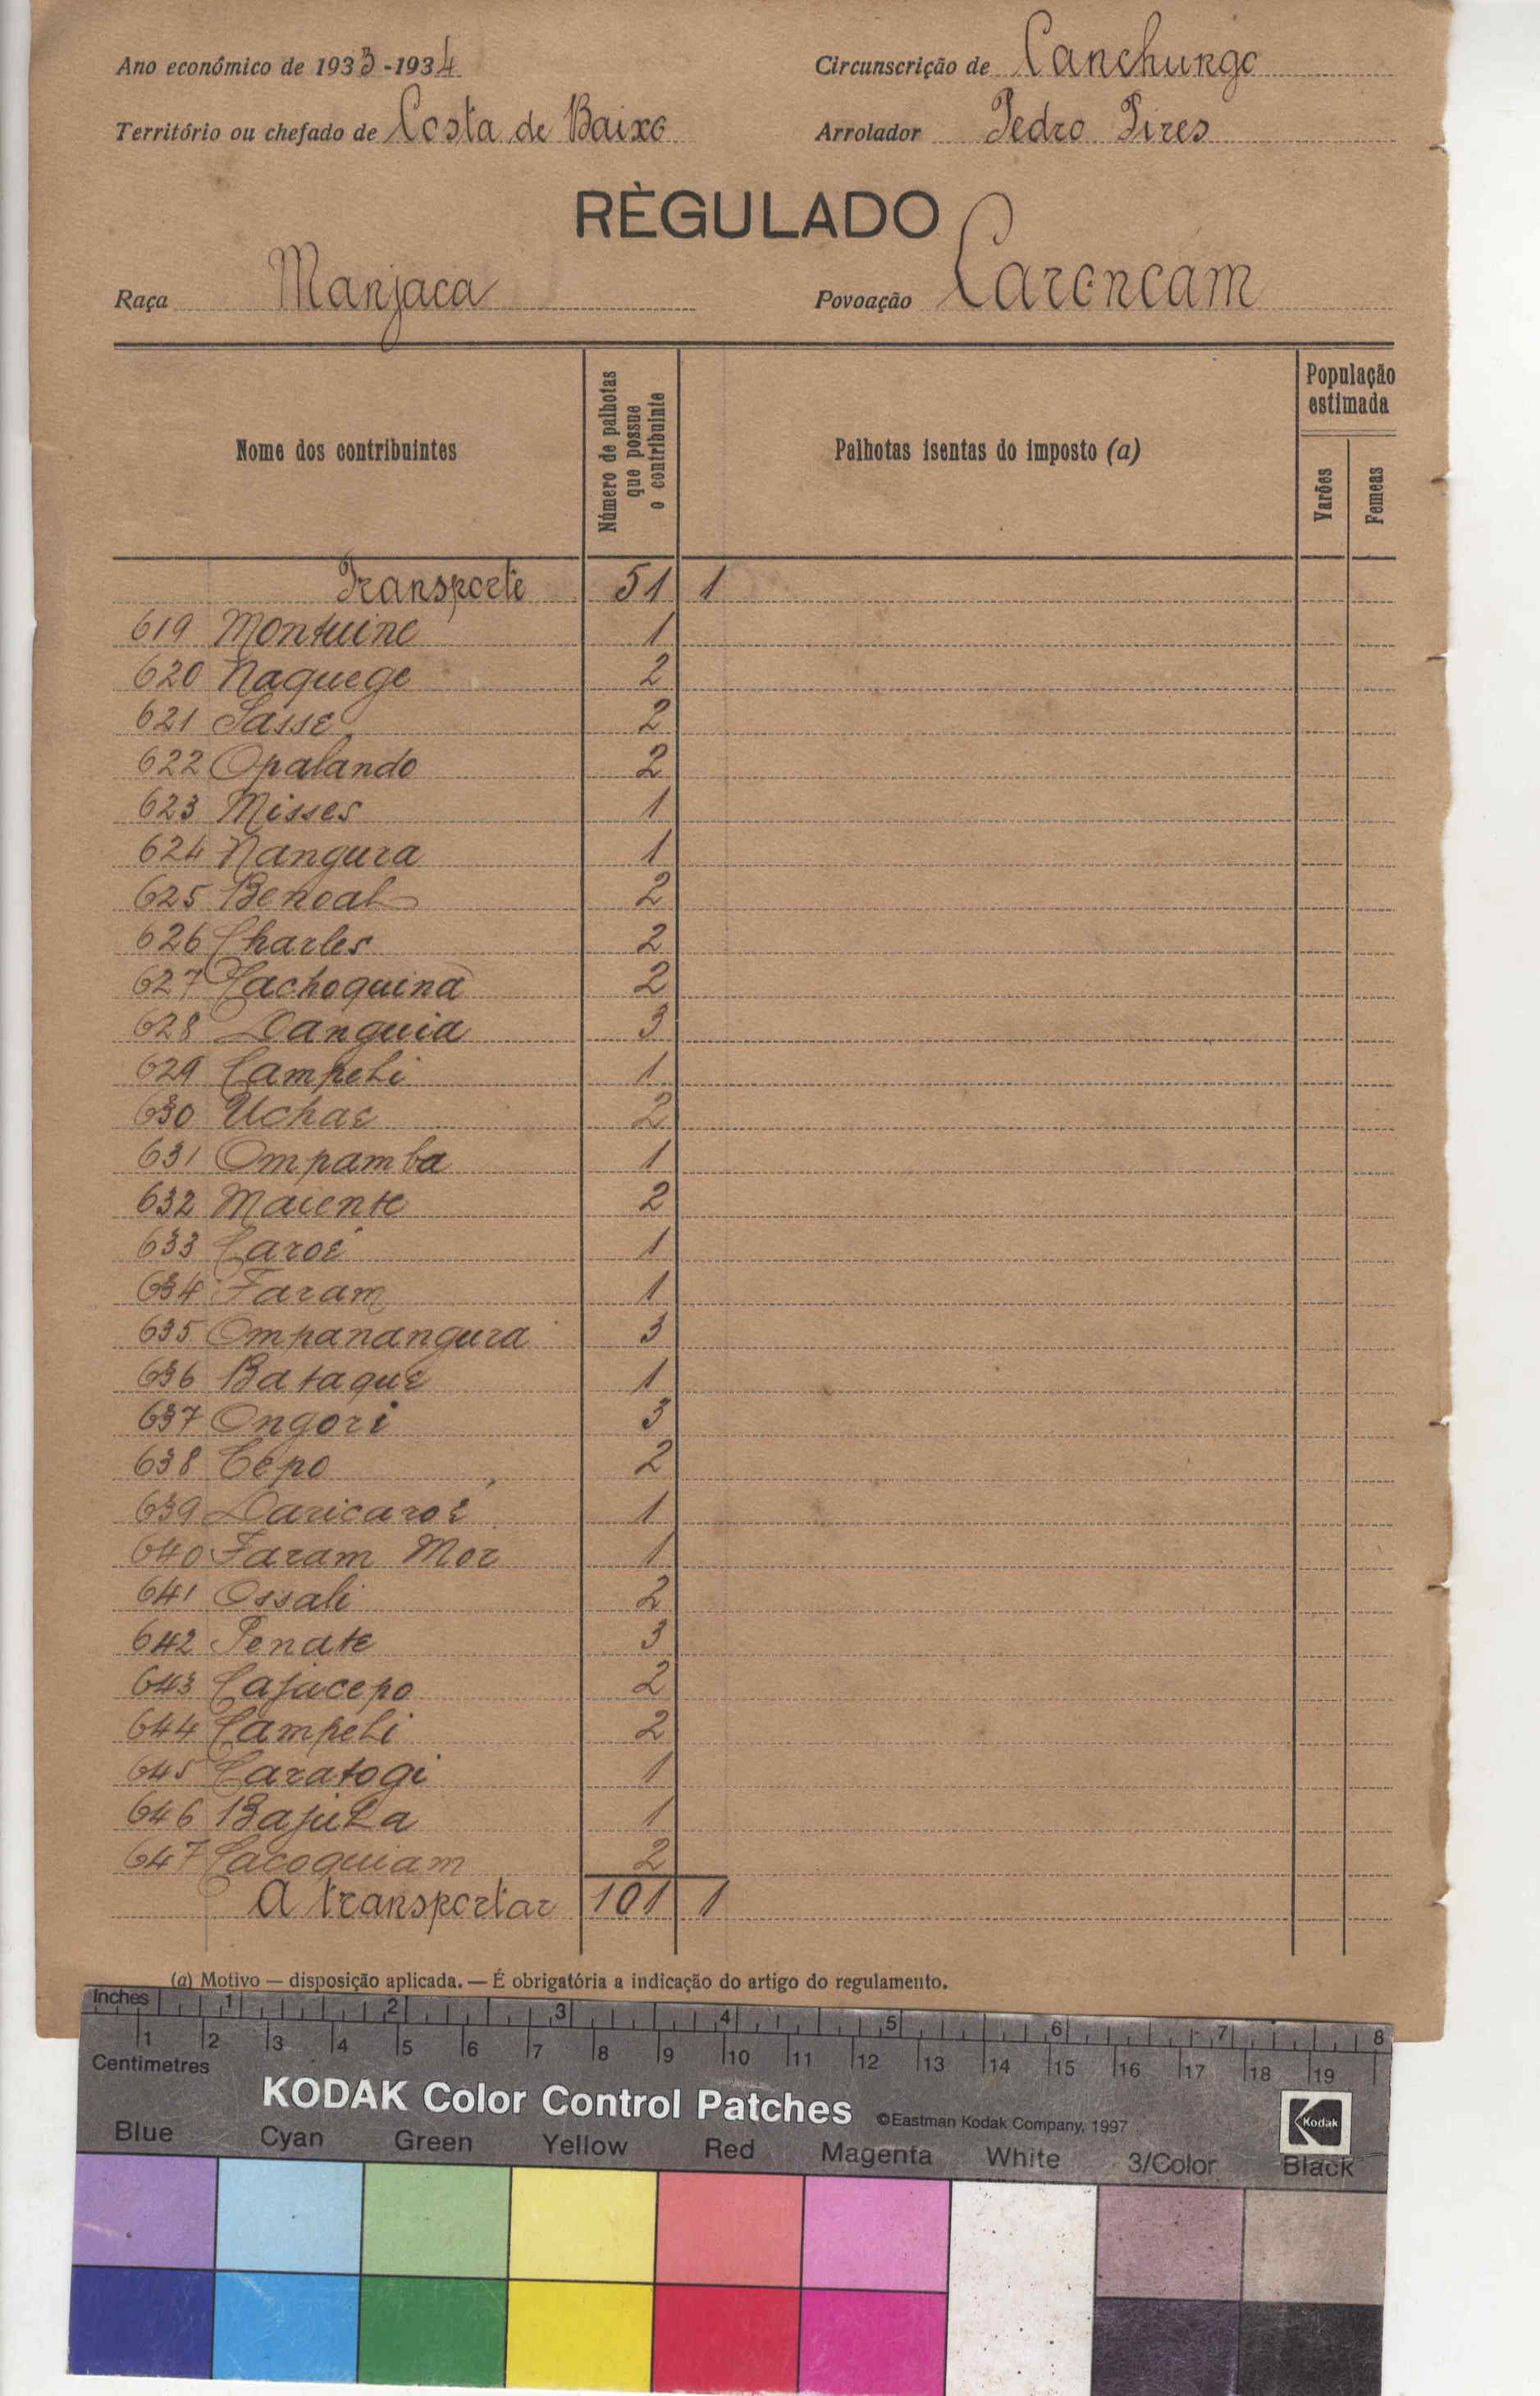 Ano económico de 1933-1934
Circunscrição de Canchungo
Território ou chefado de Costa de Baixo
Arrolador Pedro Pires
RÈGULADO
Raça Manjaca
Povoação Carencam
Nome dos contribuintes
Número de palhotas que possue o contribuinte
Palhotas isentas do imposto (a)
População estimada
Varões
Femeas
Transporte 51 1
619 Montuine 1
620 Naquege 2
621 Sasse 2
622 Opalando 2
623 Misses 1
624 Nangura 1
625 Benoal 2
626 Charles 2
627 Cachoquina 2
628 Danguia 3
629 Campeli 1
630 Uchae 2
631 Ompamba 1
632 Maiente 2
633 Caroé 1
634 Faram 1
635 Ompanangura 3
636 Bataque 1
637 Ongori 3
638 Cepo 2
639 Daricaroé 1
640 Faram Mor 1
641 Ossali 2
642 Penate 3
643 Cajucepo 2
644 Campeli 2
645 Caratogi 1
646 Bajula 1
647 Cacoquiam 2
A transportar 101 1
(a) Motivo — disposição aplicada. — É obrigatória a indicação do artigo do regulamento.
Inches 1 2 3 4 5 6 7 8
1 2 3 4 5 6 7 8 9 10 11 12 13 14 15 16 17 18 19
Centimetres
KODAK Color Control Patches ©Eastman Kodak Company, 1997 Kodak
Blue Cyan Green Yellow Red Magenta White 3/Color Black